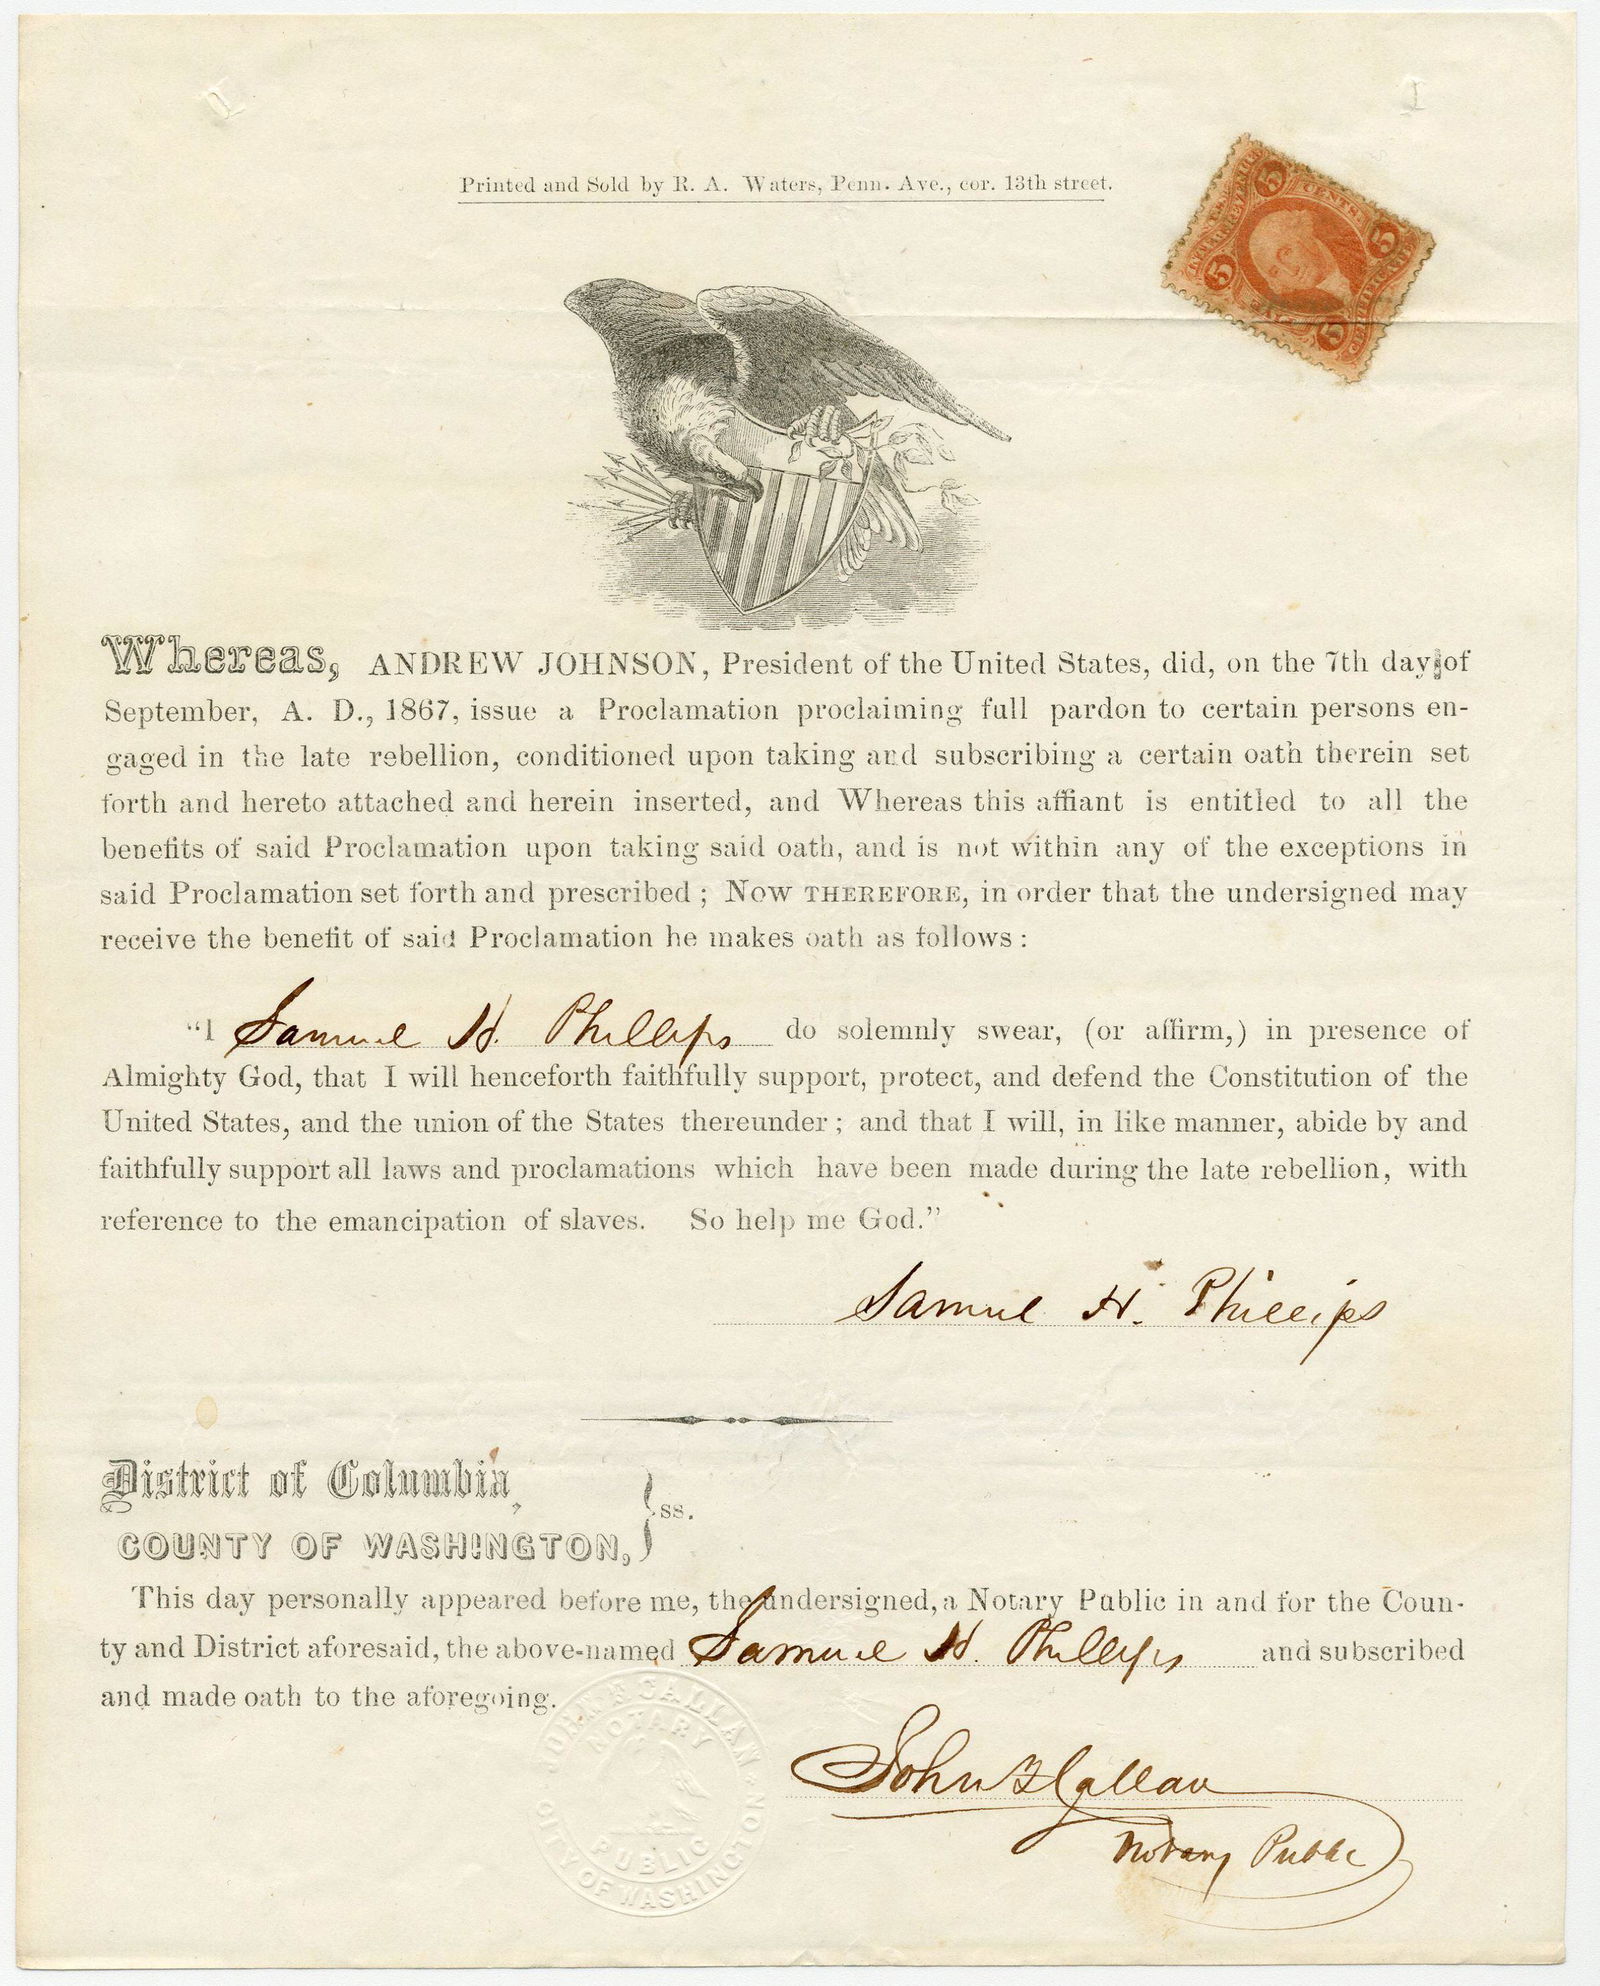 Printed and Sold by R. A. Waters, Penn. Ave., cor. 13th street.
5 CENTS 5
5 FIVE 5
Whereas, ANDREW JOHNSON, President of the United States, did, on the 7th day of
September, A. D., 1867, issue a Proclamation proclaiming full pardon to certain persons en-
gaged in the late rebellion, conditioned upon taking and subscribing a certain oath therein set
forth and hereto attached and herein inserted, and Whereas this affiant is entitled to all the
benefits of said Proclamation upon taking said oath, and is not within any of the exceptions in
said Proclamation set forth and prescribed; NOW THEREFORE, in order that the undersigned may
receive the benefit of said Proclamation he makes oath as follows:
"I Samuel H. Phillips do solemnly swear, (or affirm,) in presence of
Almighty God, that I will henceforth faithfully support, protect, and defend the Constitution of the
United States, and the union of the States thereunder; and that I will, in like manner, abide by and
faithfully support all laws and proclamations which have been made during the late rebellion, with
reference to the emancipation of slaves. So help me God."
Samuel H. Phillips
District of Columbia,
COUNTY OF WASHINGTON, } ss.
This day personally appeared before me, the undersigned, a Notary Public in and for the Coun-
ty and District aforesaid, the above-named Samuel H. Phillips and subscribed
and made oath to the aforegoing.
JOHN F CALLAN
NOTARY
PUBLIC
CITY OF WASHINGTON
John F Callan
Notary Public